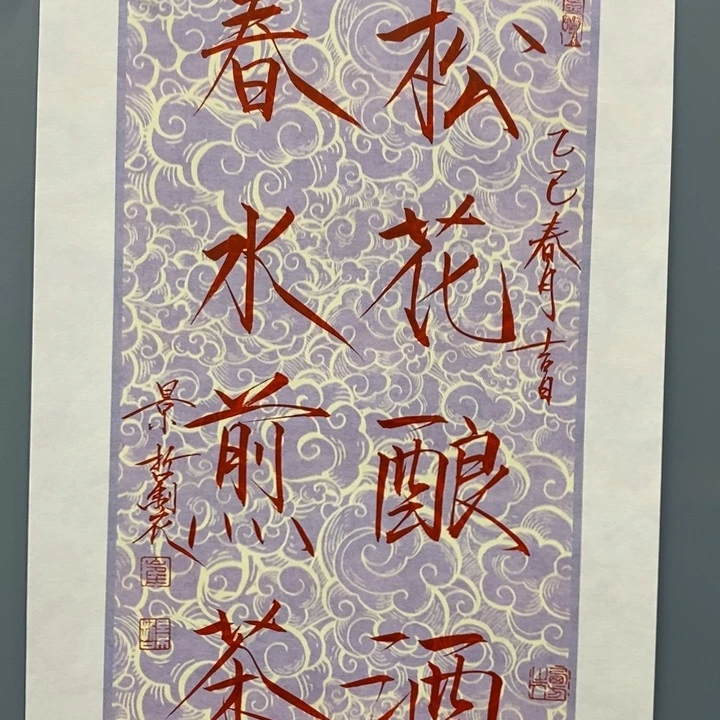 乙巳春月吉日
松花酿酒
春水煎茶
景哲兰花